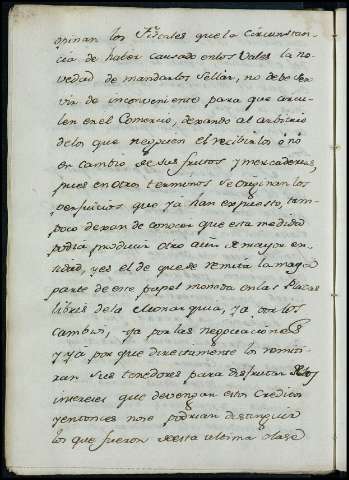 opinan los Fiscales que la Circunstan-
cia de haber causado en los Vales la no-
vedad de mandarlos sellar, no debe ser-
vir de inconveniente para que circu-
len en el Comercio, dexando al arbitrio
delos que negocien el recibirlos ó nó
en cambio de sus frutos y mercaderias,
pues en otros terminos se originan los
perjuicios que ya han expuesto, tam-
poco dexan de conocer que esta medida
podia producir otro aun de mayor en-
tidad, y es el de que se remita la mayor
parte de este papel moneda en las Plazas
libres dela Monarquia, ya por los
Cambios, ya por las negociaciones
y ya por que directamente los remiti-
ran sus tenedores para disfrutar delos
intereses que devengan estos Creditos
y entonces no se podrian distinguir
los que fueron de esta ultima clase